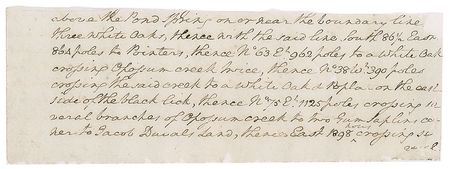 above the Pond Spring on or near the boundary line
three White Oaks, thence with the said line South 86½ East
864 poles to Binters, thence No 63 Et 962 poles to a White Oak
crossing Opossum creek twice, thence No 38 Wt 390 poles
crossing the said creek to a White Oak & Poplar on the east
side of the black lick, thence No 75 Et 1125 poles crossing se
veral branches of Opossum creek to two Gum saplins cor
ner to Jacob Duvals Land, thence East 1898 poles crossing se
veral